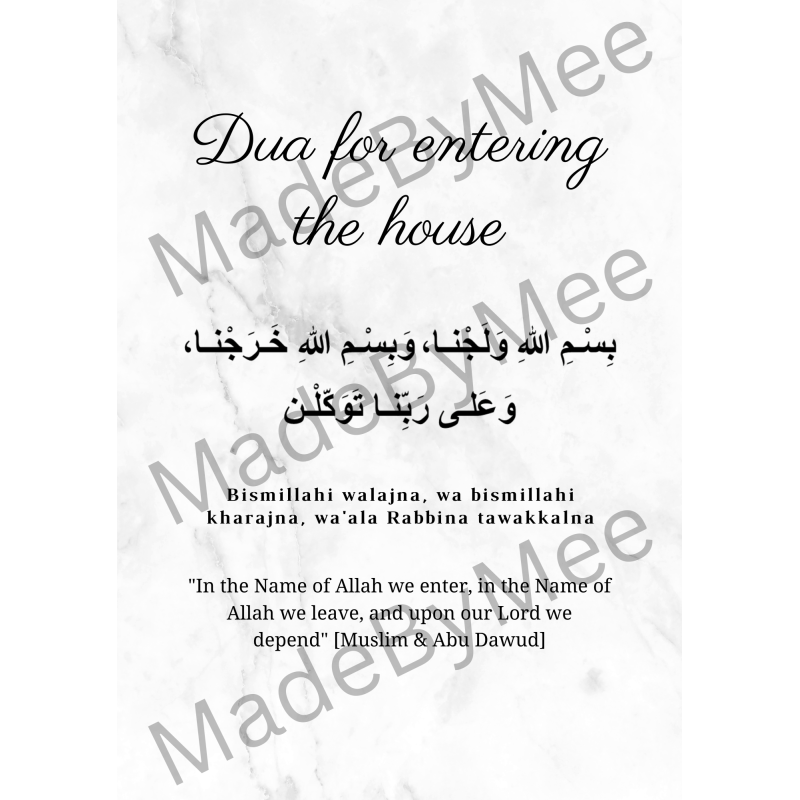 Dua for entering
the house
بِسْـمِ اللهِ وَلَجْنـا، وَبِسْـمِ اللهِ خَـرَجْنـا،
وَعَلـى رَبِّنـا تَوَكّلْـن
Bismillahi walajna, wa bismillahi
kharajna, wa'ala Rabbina tawakkalna
"In the Name of Allah we enter, in the Name of
Allah we leave, and upon our Lord we
depend" [Muslim & Abu Dawud]
MadeByMee
MadeByMee
MadeByMee